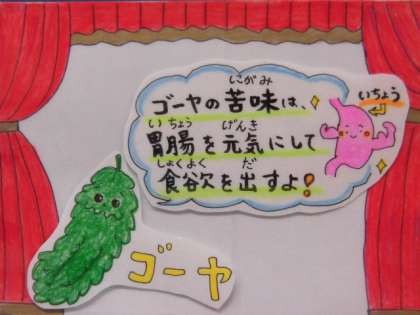 ゴーヤの苦味は、
にがみ
胃腸を元気にして
いちょう げんき
食欲を出すよ!
しょくよく だ
いちょう
ゴーヤ